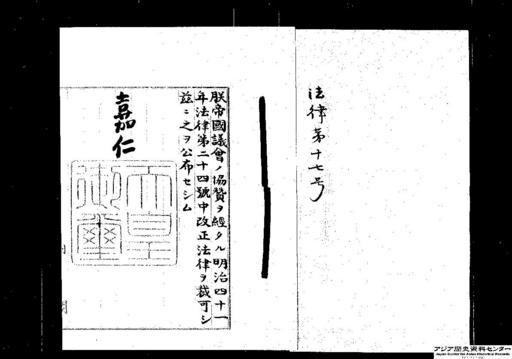 法律第十七号
朕帝國議會ノ協贊ヲ經タル明治四十一
年法律第二十四號中改正法律ヲ裁可シ
茲ニ之ヲ公布セシム
嘉仁
天皇
御璽
アジア歴史資料センター
Japan Center for Asian Historical Records